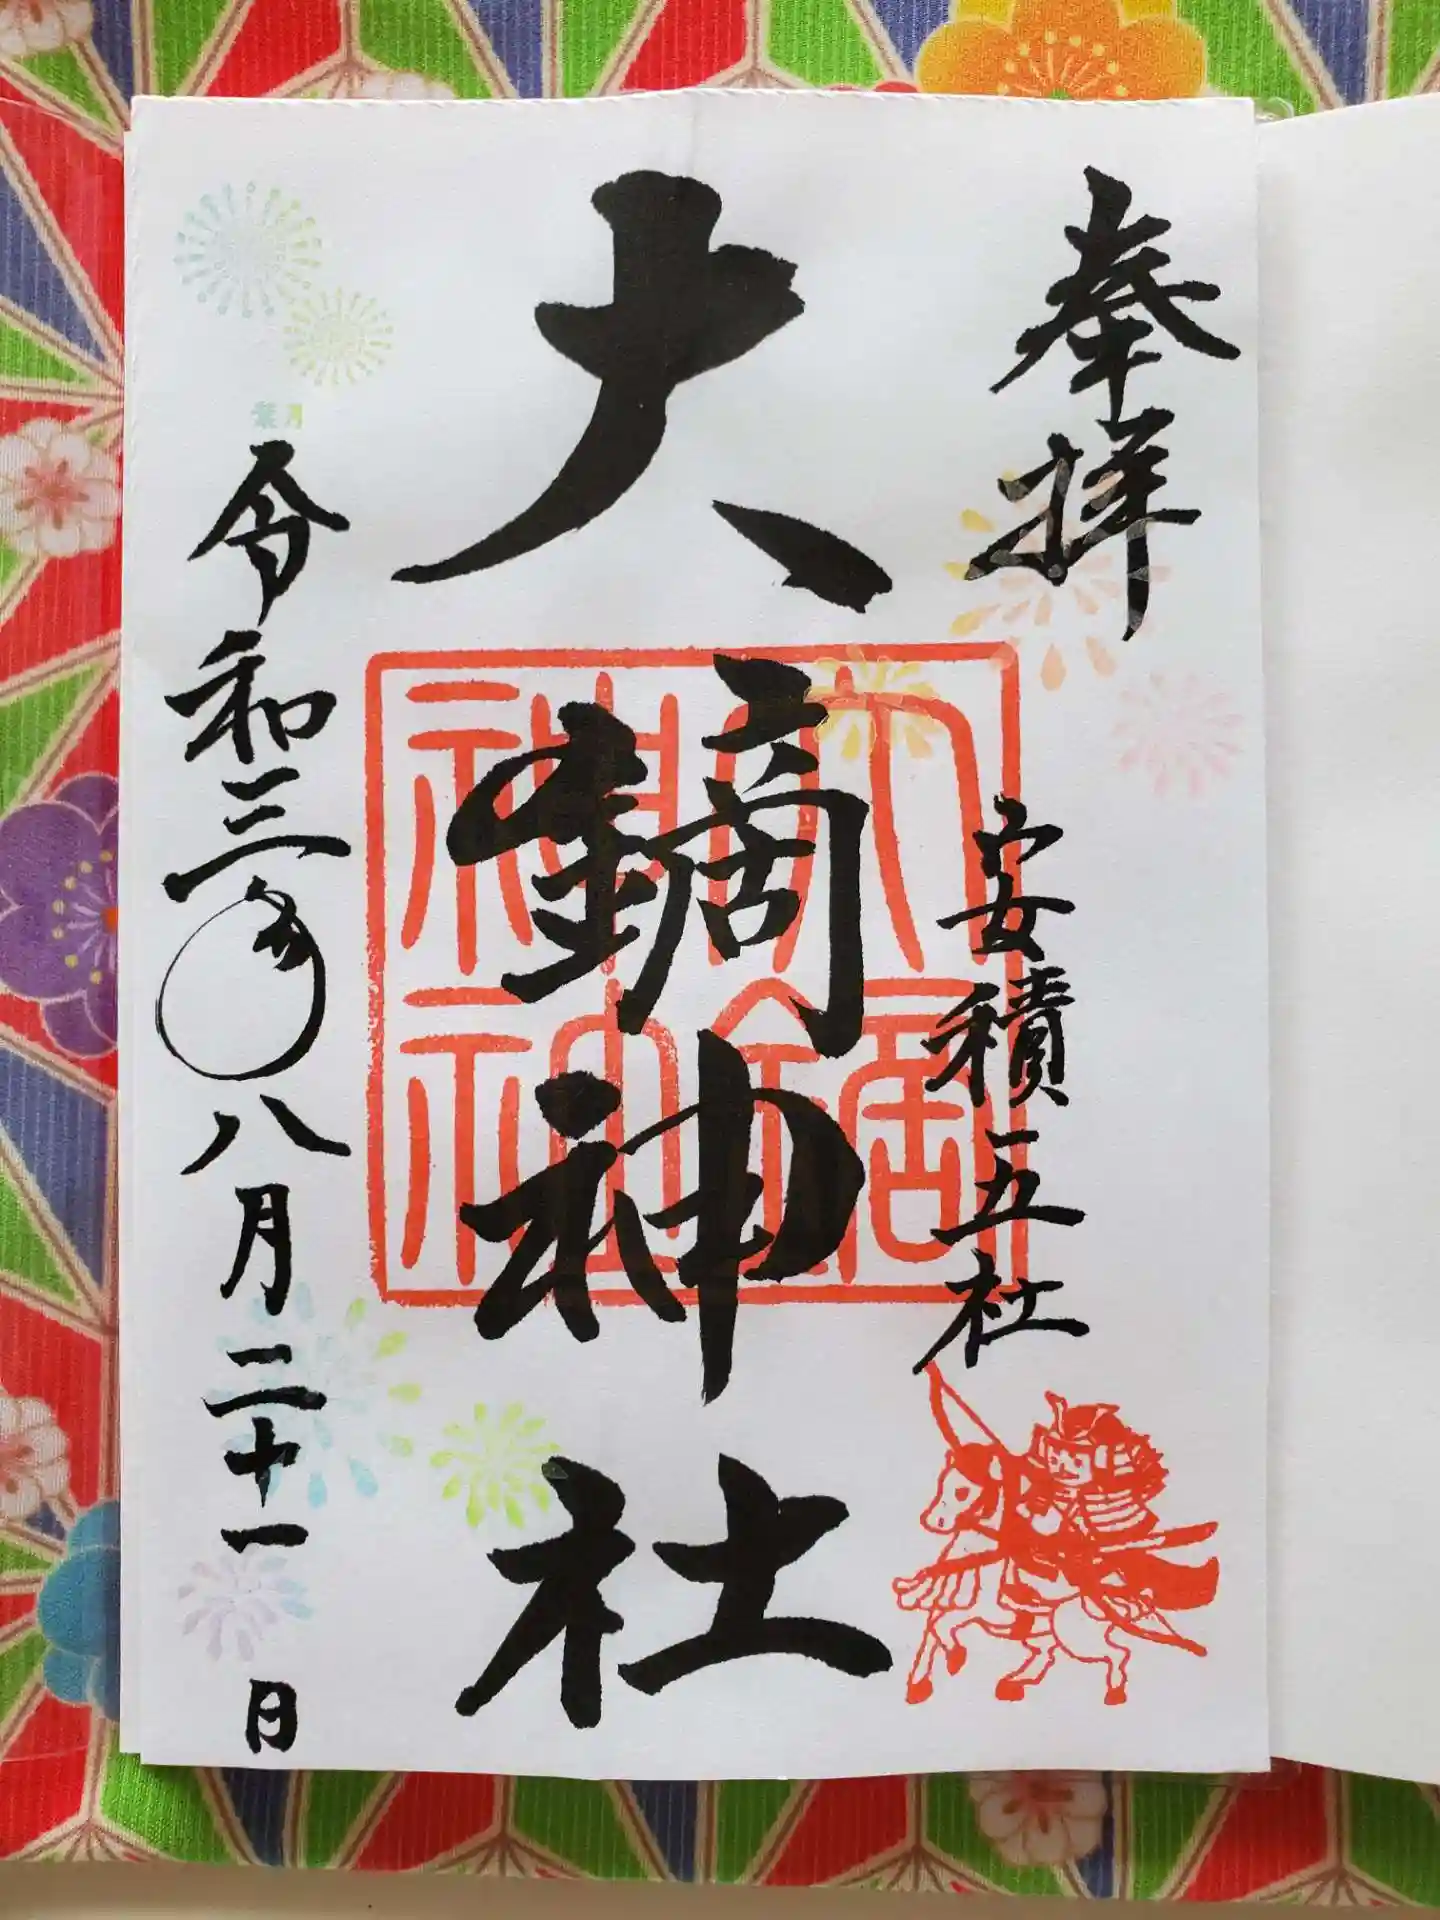 奉拝
安積三社
大鏑神社
大鏑神社
葉月
令和三年八月二十一日